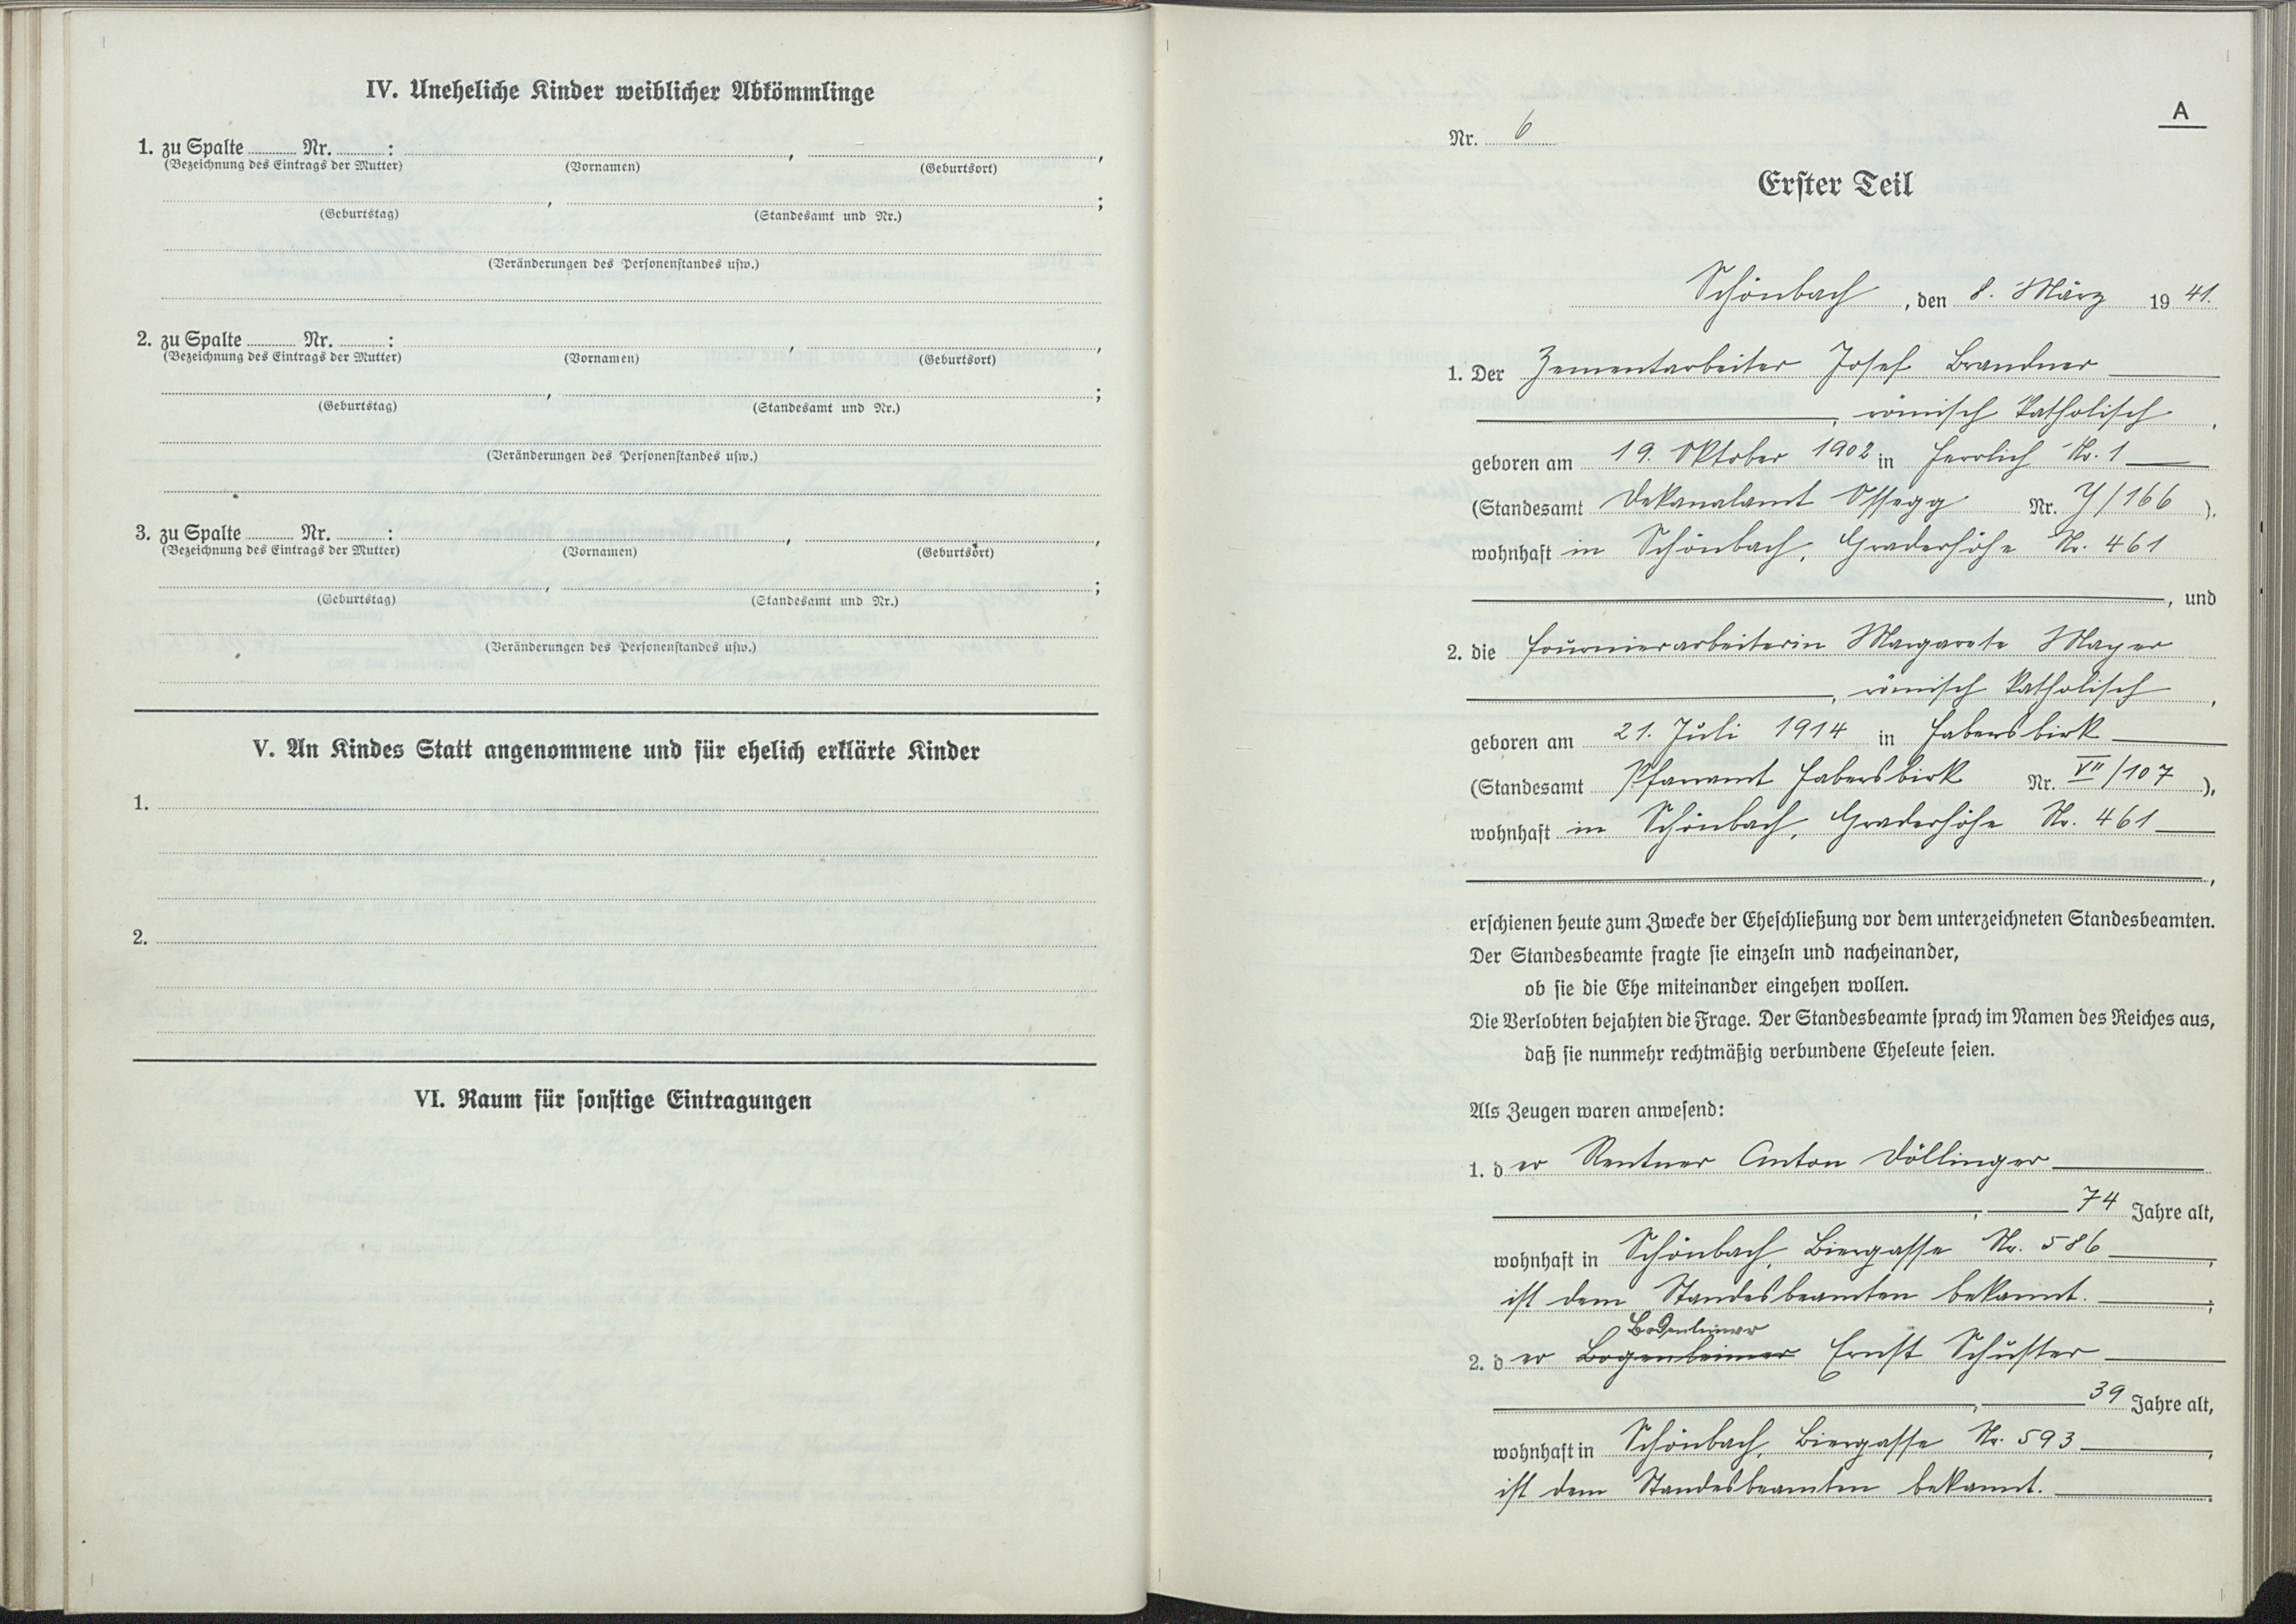 IV. Uneheliche Kinder weiblicher Abkömmlinge
1. zu Spalte Nr. : , ,
(Bezeichnung des Eintrags der Mutter) (Vornamen) (Geburtsort)
, ;
(Geburtstag) (Standesamt und Nr.)
(Veränderungen des Personenstandes usw.)
2. zu Spalte Nr. : , ,
(Bezeichnung des Eintrags der Mutter) (Vornamen) (Geburtsort)
, ;
(Geburtstag) (Standesamt und Nr.)
(Veränderungen des Personenstandes usw.)
3. zu Spalte Nr. : , ,
(Bezeichnung des Eintrags der Mutter) (Vornamen) (Geburtsort)
, ;
(Geburtstag) (Standesamt und Nr.)
(Veränderungen des Personenstandes usw.)
V. An Kindes Statt angenommene und für ehelich erklärte Kinder
1.
2.
VI. Raum für sonstige Eintragungen
A
Nr. 6
Erster Teil
Schönbach, den 8. März 1941.
1. Der Zementarbeiter Josef Brandner
, römisch katholisch,
geboren am 19. Oktober 1902 in Herrlich Nr. 1
(Standesamt Dekanalamt Ossegg Nr. 7/166 ).
wohnhaft in Schönbach, Graderhöhe Nr. 461
, und
2. die Fournierarbeiterin Margarete Mayer
, römisch katholisch,
geboren am 21. Juli 1914 in Habersbirk
(Standesamt Pfarramt Habersbirk Nr. VII/107 ),
wohnhaft in Schönbach, Graderhöhe Nr. 461
,
erschienen heute zum Zwecke der Eheschließung vor dem unterzeichneten Standesbeamten.
Der Standesbeamte fragte sie einzeln und nacheinander,
ob sie die Ehe miteinander eingehen wollen.
Die Verlobten bejahten die Frage. Der Standesbeamte sprach im Namen des Reiches aus,
daß sie nunmehr rechtmäßig verbundene Eheleute seien.
Als Zeugen waren anwesend:
1. der Rentner Anton Döllinger
, 74 Jahre alt,
wohnhaft in Schönbach, Biergasse Nr. 586,
ist dem Standesbeamten bekannt.;
Bodenleimer
2. der Bogenleimer Ernst Schuster
, 39 Jahre alt,
wohnhaft in Schönbach, Biergasse Nr. 593,
ist dem Standesbeamten bekannt.